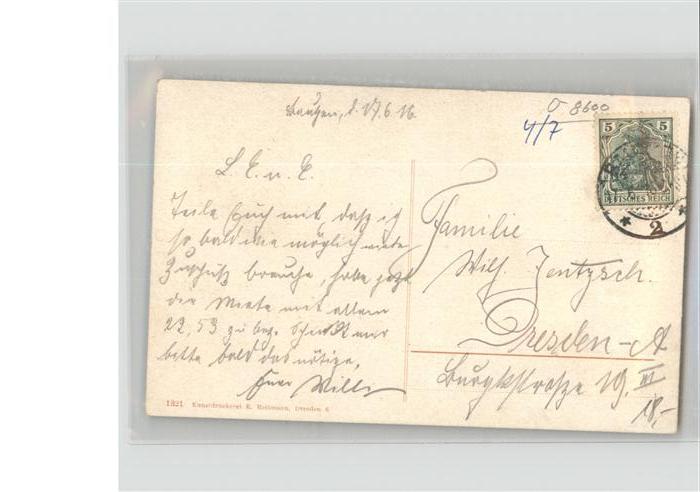 Bautzen, d. 17.6.16.
O 8600
4/7
5 5
DEUTSCHES REICH
2
L. E. u. E.
Teile Euch mit, dass ich
so bald wie möglich wieder
Zuschuß brauche, habe jetzt
die Miete mit allem
22,53 zu bez. Schickt mir
bitte bald das nötige,
Euer Willi
Familie
Wilh. Jentzsch.
Dresden-A
Burgkstraße 19. III
18,-
1321 Kunstdruckerei K. Dresden 6